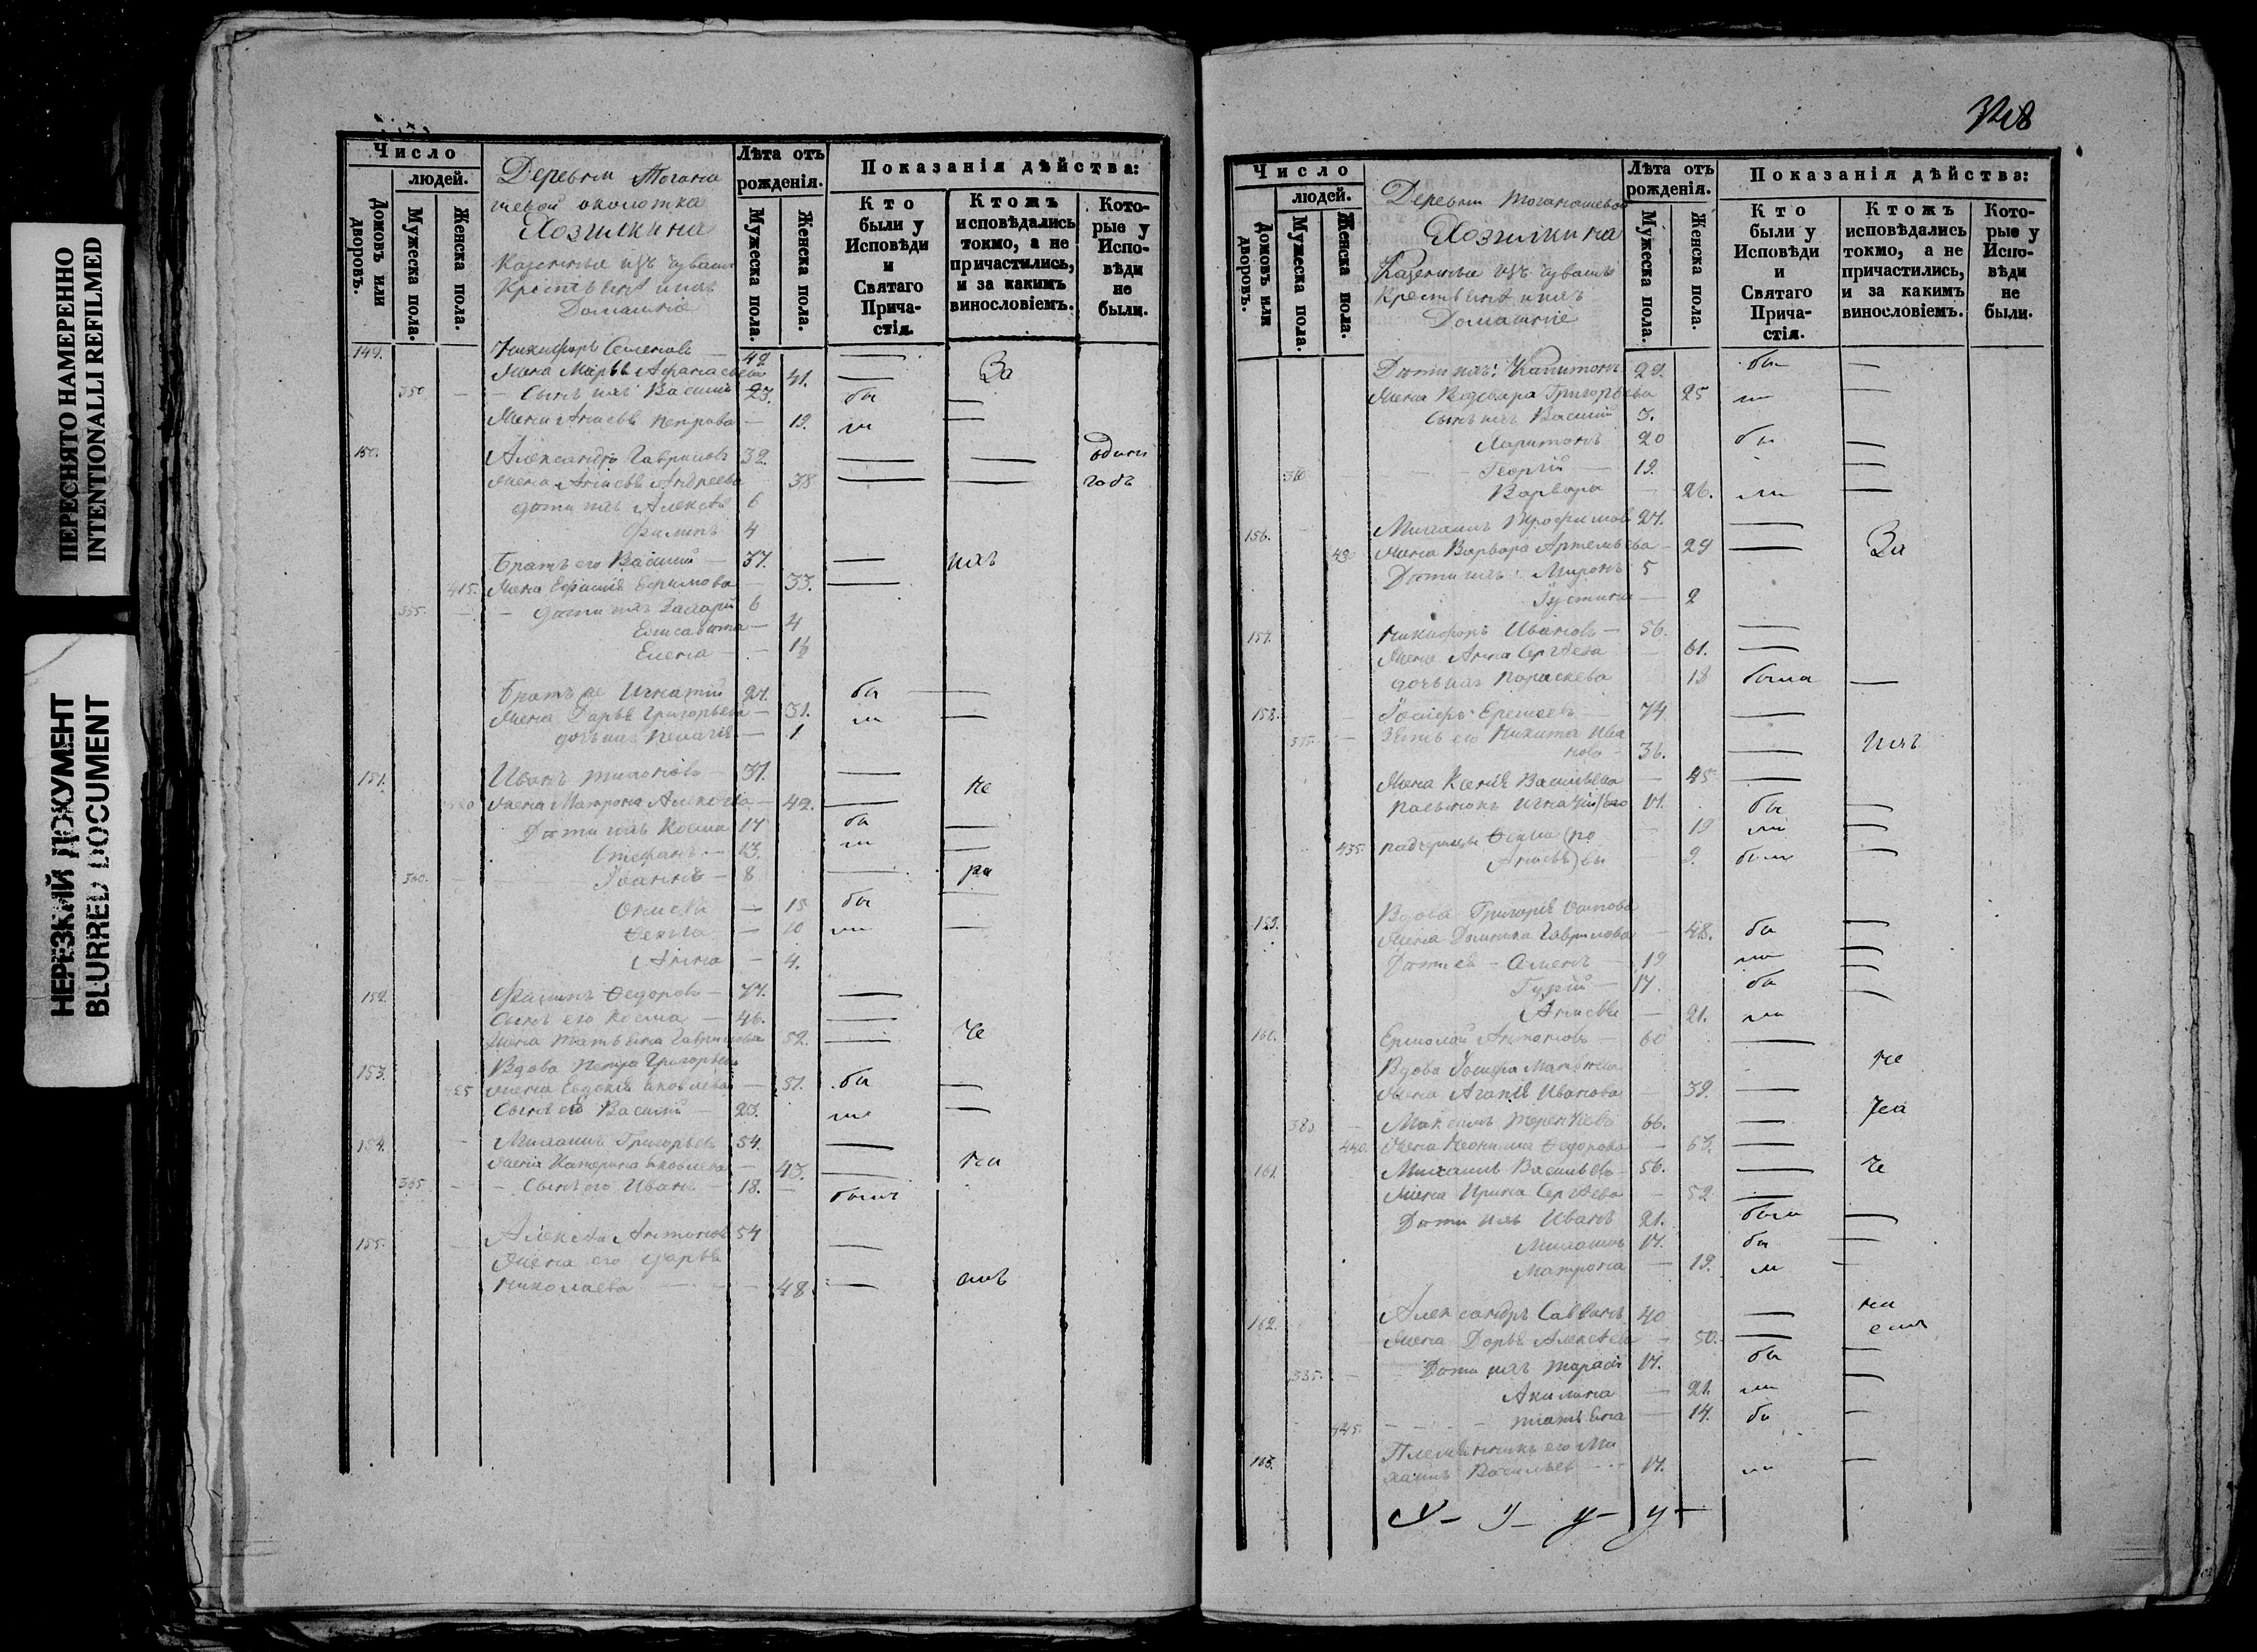 ПЕРЕСНЯТО НАМЕРЕННО
INTENTIONALLI REFILMED
НЕРЕЗКИЙ ДОКУМЕНТ
BLURRED DOCUMENT
Число
людей.
Домовъ или дворовъ.
Мужеска пола.
Женска пола.
Деревни Тогана
шевой околотка
Хозилкина
Казенные изъ чувашъ
Крестьяне и ихъ
Домашніе
Лѣта отъ рожденія.
Мужеска пола.
Женска пола.
Показанія дѣйства:
Кто были у Исповѣди и Святаго Причастія.
Ктожъ исповѣдались токмо, а не причастились, и за какимъ винословіемъ.
Которые у Исповѣди не были.
149. Никифоръ Семеновъ — 42 —
Жена Марья Афанасьева 41. — За
350 — Сынъ ихъ Василій 23. бы —
Жена Анисья Петрова — 19. ли —
150. Александръ Гавриловъ 32. — — одинъ
Жена Анисья Андреева 38 — — годъ
дѣти ихъ Алексѣй 6
Филипъ 4
Братъ его Василій — 37. — ихъ
415. Жена Ефимія Ефимова — 33. —
355. — дѣти ихъ Захарій 6
Елисавета — 4
Елена — 1½
Братъ же Игнатій 27. бы —
Жена Дарья Григорьева — 31. ли —
дочь ихъ Пелагія — 1
151. Иванъ Тихоновъ — 37. —
420 Жена Матрона Алексѣева — 42. — не
Дѣти ихъ Косма 17 бы —
Стефанъ — 13. ли —
360. Іоаннъ — 8 — ра
Онисья — 15 бы —
Ѳекла — 10 ли —
Анна — 4.
152. Филипъ Ѳедоровъ — 77. —
Сынъ его Косма — 46. —
Жена Татьяна Гаврилова 52. — че
153. Вдова Петра Григорьева
425 Жена Евдокія Яковлева — 51. бы —
Сынъ ея Василій — 23. ли —
154. Михаилъ Григорьевъ 54. —
Жена Катерина Яковлева — 43. — ни
365 — Сынъ его Иванъ — 18. — былъ
155. Алексѣй Антоновъ 54 —
Жена его Дарья
Николаева — 48 — емъ
328
Число
людей.
Домовъ или дворовъ.
Мужеска пола.
Женска пола.
Деревни Тоганашевой
Хозилкина
Казенные изъ чувашъ
Крестьяне и ихъ
Домашніе
Лѣта отъ рожденія.
Мужеска пола.
Женска пола.
Показанія дѣйства:
Кто были у Исповѣди и Святаго Причастія.
Ктожъ исповѣдались токмо, а не причастились, и за какимъ винословіемъ.
Которые у Исповѣди не были.
Дѣти ихъ: Капитонъ 29. бы —
Жена Варвара Григорьева 25 ли —
Сынъ ихъ Василій 3.
Харитонъ 20 бы —
370 Георгій — 19. —
Варвара — 26. ли —
156. Михаилъ Трофимовъ 27. —
430 Жена Варвара Артемьева — 29 — За
Дѣти ихъ: Миронъ 5
Іустина — 2
157. Никифоръ Ивановъ — 56. —
Жена Анна Сергѣева — 61. —
дочь ихъ Параскева 18 была —
158. Іосифъ Еремеевъ — 74 —
375 — Зять его Никита Ива
новъ — 36. — ихъ
Жена Ксенія Васильева — 45 —
Пасынокъ Игнатій 17. бы —
435. падчерицы Ѳекла (по — 19 ли —
Анисья) — 9. были —
159. Вдова Григорія
Жена Домника Гаврилова — 48. бы —
Дѣти ея — Семенъ — 19 ли —
Гурій — 17. бы —
Анисья — 21. ли —
160. Ермолай Антоновъ — 60 —
Вдова Іосифа Матвѣева не
Жена Агапія Иванова — 39. —
380 — Максимъ Терентіевъ 66. — ра
440. Жена Неонила Ѳедорова — 63. —
161. Михаилъ Васильевъ — 56. — че
Жена Ирина Сергѣева — 52 —
Дѣти ихъ Иванъ 21. были —
Михаилъ 17. бы —
Матрона — 19. ли —
162. Александръ Саввинъ 40 — ни
Жена Дарья Алексѣева — 50. — емъ
385. — Дѣти ихъ Тарасій 17. бы —
Акилина — 21. ли —
445. Татьяна — 14. бы —
163. Племянникъ его Ми
хаилъ Васильевъ — 17. ли —